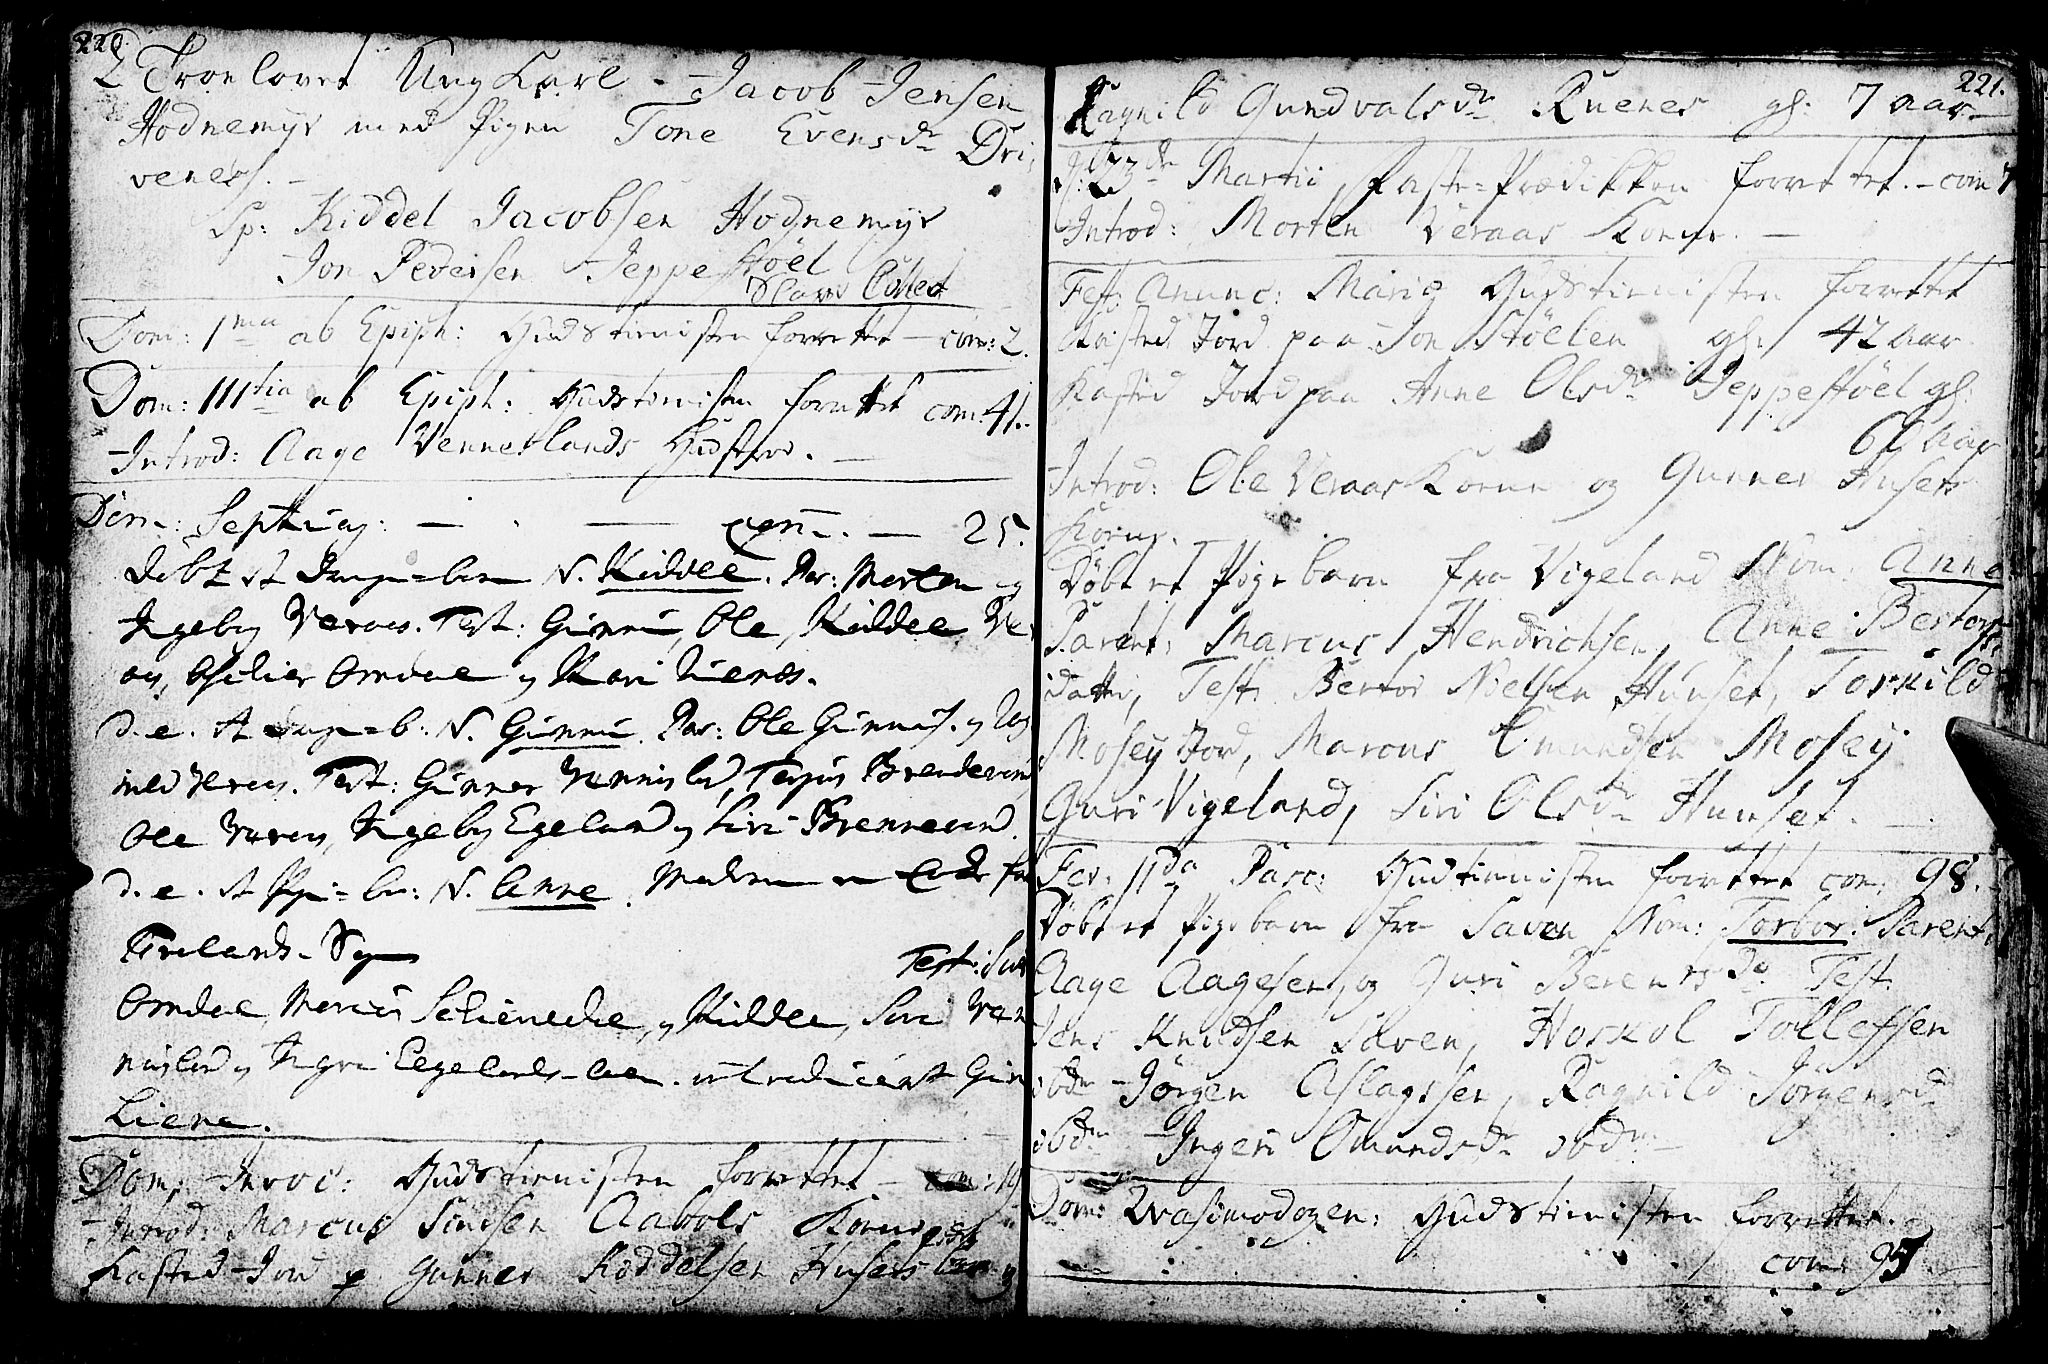 220.
2 Troelovet Ung Karl - Jacob Jensen
Hodnemyr med Pigen Tone Evensdr Dri,
venes. -
Sp: Kiddel Jacobsen Hodnemyr
Jon Pedersen Jeppestöel
Collect
Dom: 1ma ab Epiph: Gudstienisten forrettet - com: 2.
Dom: IIItia ab Epiph: Gudstienisten forrettet com: 41.
Introd: Aage Vennerlands Hustroe. -
Dom: Septuag: - - com. - 25.
döbt et Dreng=barn N. Kiddel. Par: Morten og
Ingeborg Veraas. Test: Gunni, Ole, Kiddel Ver
aas, Omdal og Mari
d. e. et Dreng=b: N. Gunni. Par: Ole Gunnis. og Rag
nild Veraas. Test: Gunner Vennislad, Terjus Brendevand
Ole Veraas, Ingeborg Egeland og Siri Brennevand.
d. e. et Pige=ba: N. Anne. Moderen er
Test: Siri
Omdal, Marcus og Kiddel, Siri Ven
nislad og Ingri Egelands introduceret Gun
Liene.
Dom: Invoc: Gudstienisten forrettet - com: 19
Introd: Marcus Simsen Aabols Kone
Kasted Jord p Gunner Kiddelsen Husets og
221.
Ragnild Gundvalsdr Ruenes gl: 7 aar. -
d: 23de Martii Faste=Prædikken forrettet. - com 7
Introd: Morten Veraas Kone. -
Fest: Anunc: Mariæ Gudstienisten forrettet
Kasted Jord paa Jon Stöelen gl: 42 Aar.
Kasted Jord paa Anne Olsdr Jeppestöel gl:
Aar
Introd: Ole Veraas Kone og Gunner Husets
Kone.
Döbt et Pigebarn fra Vigeland Nom: Anne
Parent: Marcus Hendrichsen, Anne Bertors
datter, Test: Bertor Nielsen Hunset, Torkild
Mosey Jord, Marcus Omundsen Mosey
Guri Vigeland, Siri Olsdr Hunset. -
Fer: IIda Pasc: Gudstienisten forrettet com: 98. -
Döbt et Pigebarn fra Saven Nom: Torbor. Parent:
Aage Aagesen, og Guri Berentsdr Test:
Jens Knudsen Saven, Hoskol Tollefsen
ibdm Jörgen Aslagssen, Ragnild Jörgensd
ibdm Ingeri Omundsdr ibdm -
Dom: Qvasimodogen: Gudstienisten forrettet.
com: 95